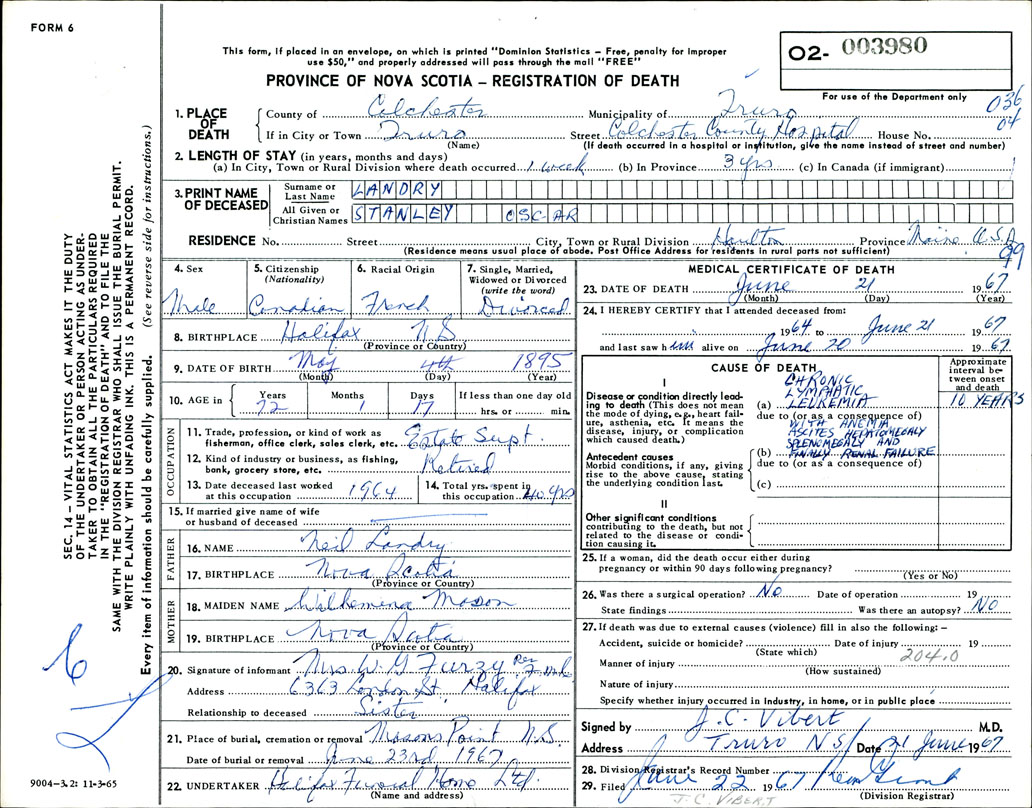 FORM 6
This form, if placed in an envelope, on which is printed "Dominion Statistics – Free, penalty for improper
use $50," and properly addressed will pass through the mail "FREE"
PROVINCE OF NOVA SCOTIA – REGISTRATION OF DEATH
O2- 003980
For use of the Department only
036
04
1. PLACE OF DEATH
County of Colchester Municipality of Truro
If in City or Town Truro Street Colchester County Hospital House No.
(Name) (If death occurred in a hospital or institution, give the name instead of street and number)
2. LENGTH OF STAY (in years, months and days)
(a) In City, Town or Rural Division where death occurred 1 week (b) In Province 3 yrs (c) In Canada (if immigrant)
3. PRINT NAME OF DECEASED
Surname or Last Name LANDRY
All Given or Christian Names STANLEY OSCAR
RESIDENCE No. Street City, Town or Rural Division Houlton Province Maine U.S.A
(Residence means usual place of abode. Post Office Address for residents in rural parts not sufficient)
99
SEC. 14 – VITAL STATISTICS ACT MAKES IT THE DUTY
OF THE UNDERTAKER OR PERSON ACTING AS UNDER-
TAKER TO OBTAIN ALL THE PARTICULARS REQUIRED
IN THE "REGISTRATION OF DEATH" AND TO FILE THE
SAME WITH THE DIVISION REGISTRAR WHO SHALL ISSUE THE BURIAL PERMIT.
WRITE PLAINLY WITH UNFADING INK. THIS IS A PERMANENT RECORD.
Every item of information should be carefully supplied. (See reverse side for instructions.)
4. Sex
Male
5. Citizenship
(Nationality)
Canadian
6. Racial Origin
French
7. Single, Married,
Widowed or Divorced
(write the word)
Divorced
8. BIRTHPLACE Halifax N.S
(Province or Country)
9. DATE OF BIRTH May 4th 1895
(Month) (Day) (Year)
10. AGE in
Years Months Days If less than one day old
72 1 17 hrs. or min.
OCCUPATION
11. Trade, profession, or kind of work as
fisherman, office clerk, sales clerk, etc. Estate Supt.
12. Kind of industry or business, as fishing,
bank, grocery store, etc. Retired
13. Date deceased last worked
at this occupation 1964
14. Total yrs. spent in
this occupation 40 yrs
15. If married give name of wife
or husband of deceased
FATHER
16. NAME Neil Landry
17. BIRTHPLACE Nova Scotia
(Province or Country)
MOTHER
18. MAIDEN NAME Wilhemina Mason
19. BIRTHPLACE Nova Scotia
(Province or Country)
20. Signature of informant Mrs W G Furzy Per
Address 6363 London St. Halifax
Relationship to deceased Sister
21. Place of burial, cremation or removal Masons Point N.S.
Date of burial or removal June 23rd 1967
22. UNDERTAKER Halifax Funeral Home Ltd.
(Name and address)
9004–3.2: 11-3-65
MEDICAL CERTIFICATE OF DEATH
23. DATE OF DEATH June 21 1967
(Month) (Day) (Year)
24. I HEREBY CERTIFY that I attended deceased from:
1964 to June 21 1967
and last saw him alive on June 20 1967
CAUSE OF DEATH
Approximate
interval be-
tween onset
and death
I
Disease or condition directly lead-
ing to death (This does not mean
the mode of dying, e.g., heart fail-
ure, asthenia, etc. It means the
disease, injury, or complication
which caused death.)
CHRONIC
LYMPHATIC
(a) LEUKEMIA 10 YEARS
due to (or as a consequence of)
WITH ANEMIA
ASCITES HEPATOMEGALY
SPLENOMEGALY AND
(b) FINALLY RENAL FAILURE
due to (or as a consequence of)
(c)
Antecedent causes
Morbid conditions, if any, giving
rise to the above cause, stating
the underlying condition last.
II
Other significant conditions
contributing to the death, but not
related to the disease or condi-
tion causing it.
25. If a woman, did the death occur either during
pregnancy or within 90 days following pregnancy?
(Yes or No)
26. Was there a surgical operation? No Date of operation 19
State findings Was there an autopsy? NO
27. If death was due to external causes (violence) fill in also the following: –
Accident, suicide or homicide? Date of injury 19
(State which) 204.0
Manner of injury
(How sustained)
Nature of injury
Specify whether injury occurred in industry, in home, or in public place
Signed by J. C. Vibert M.D.
Address Truro N S Date 21 June 1967
28. Division Registrar's Record Number
29. Filed June 22 1967
J. C. VIBERT (Division Registrar)